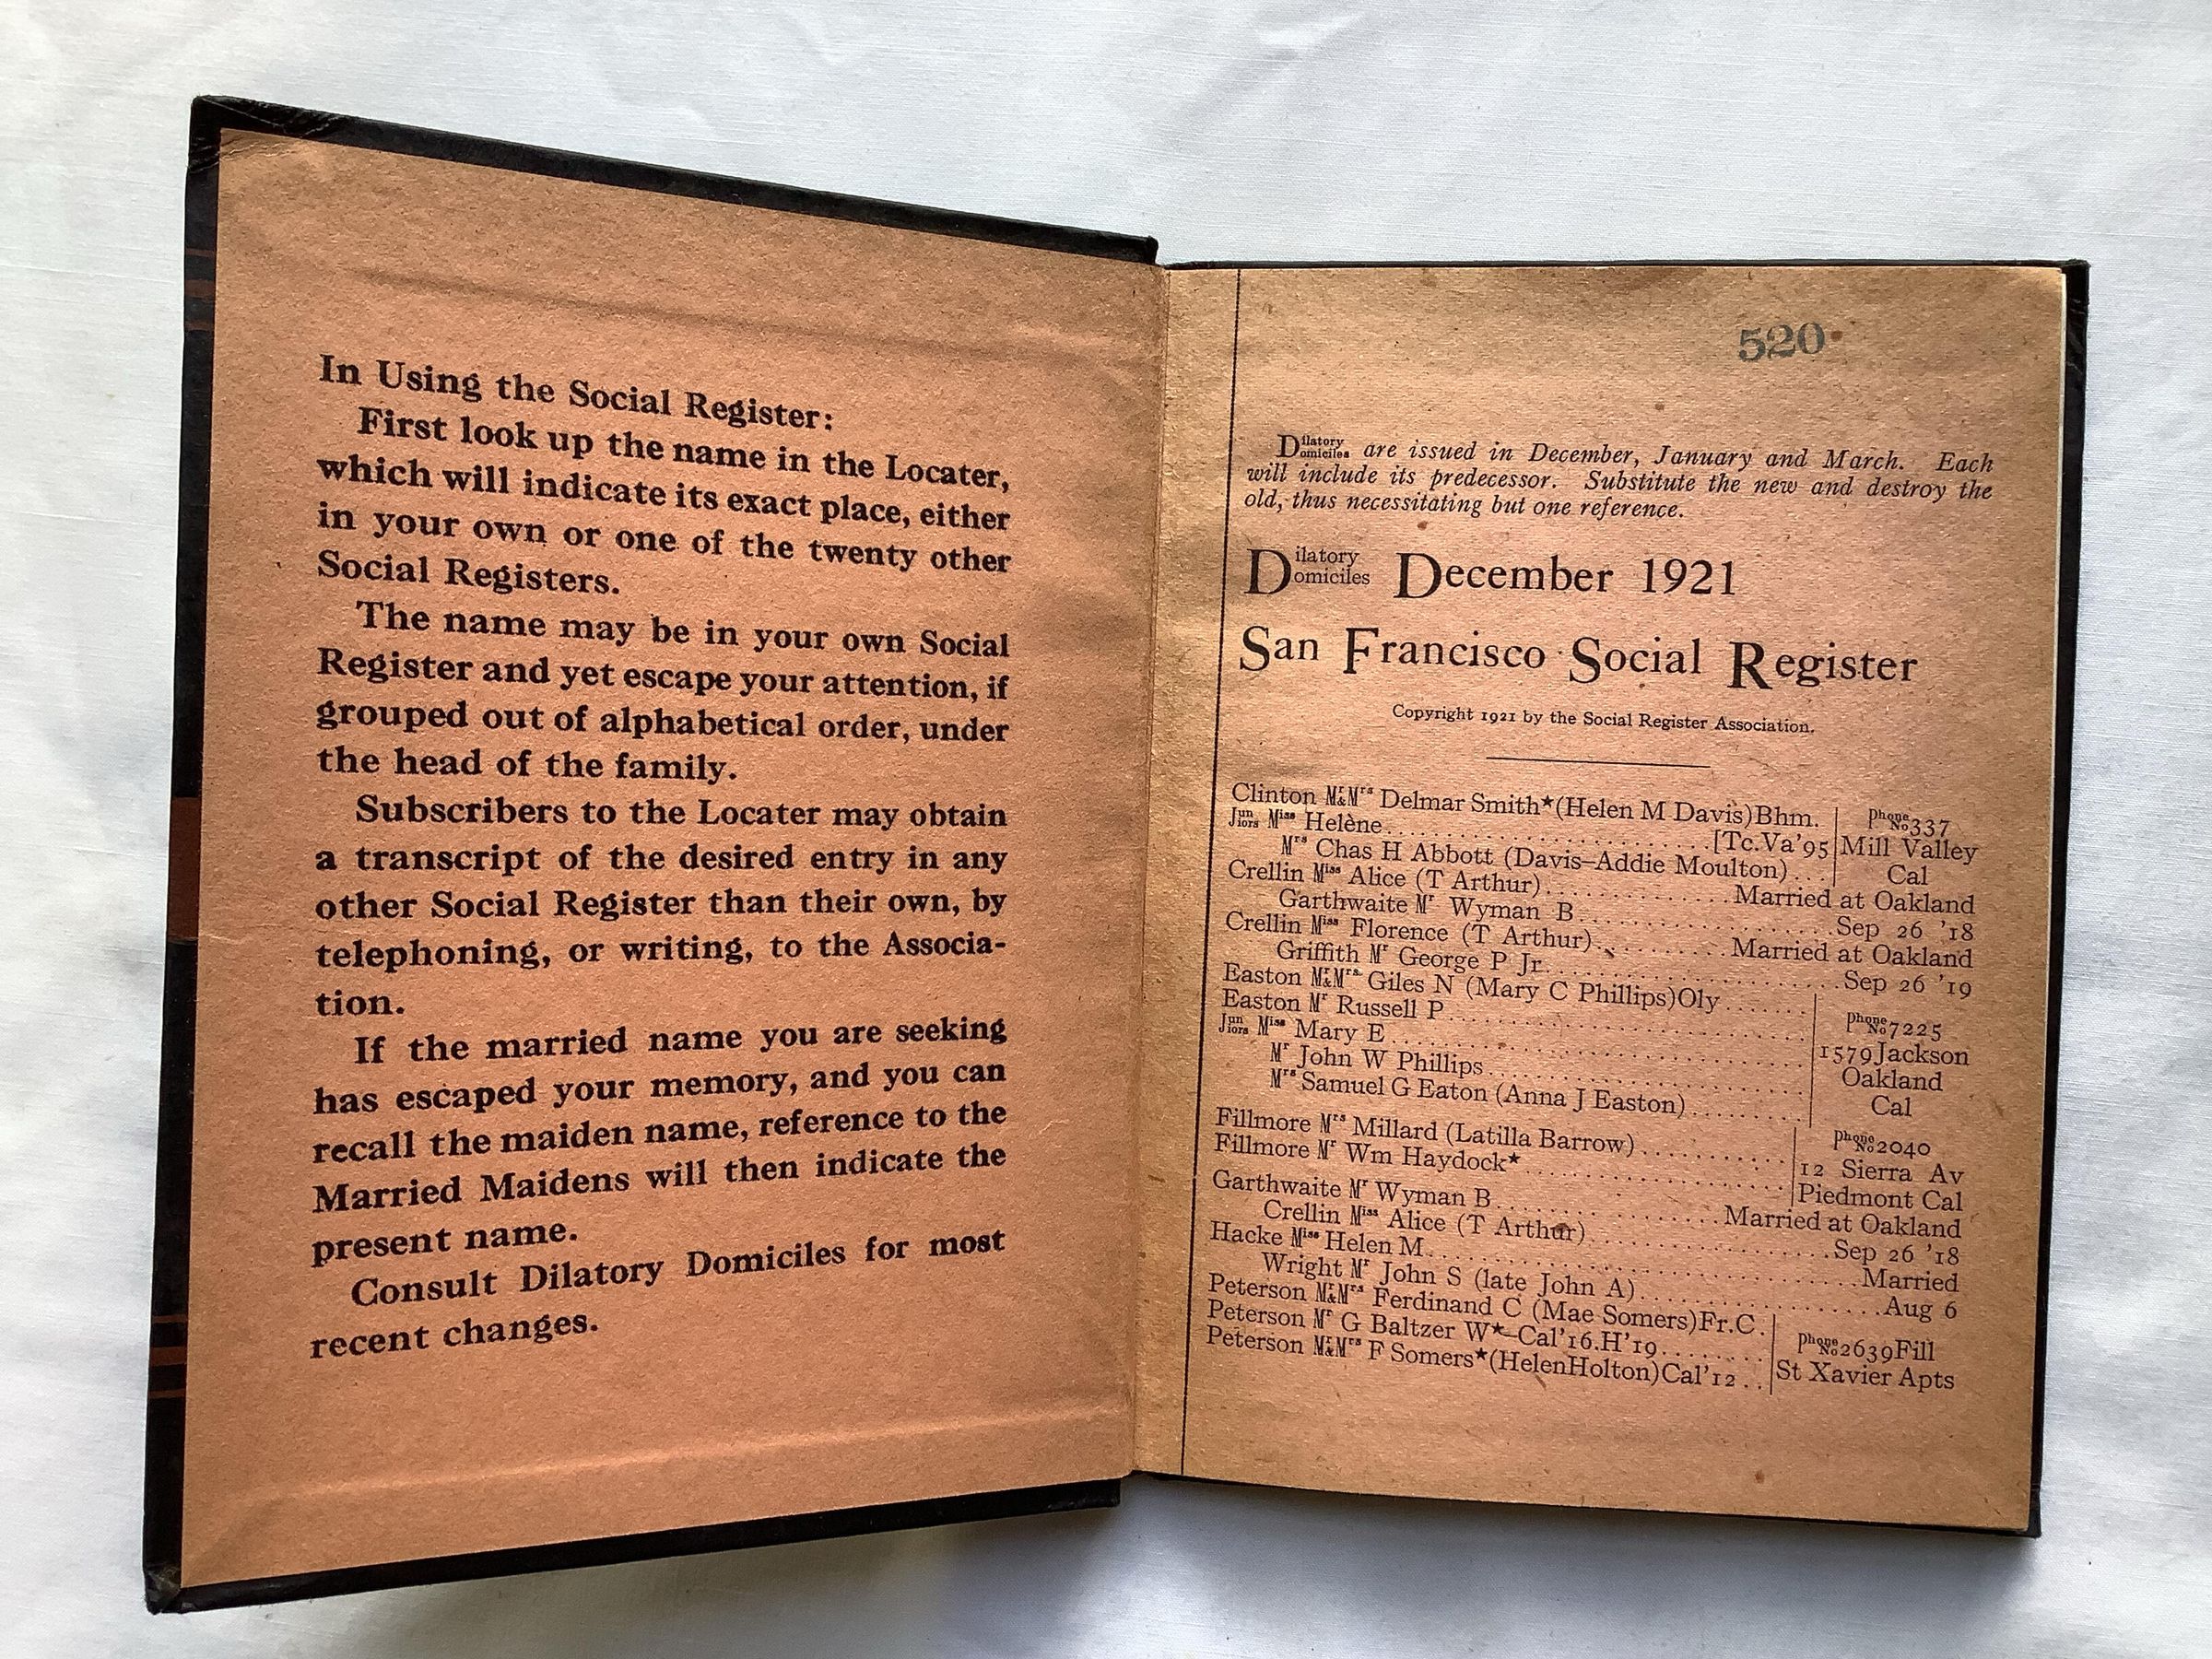 In Using the Social Register:
First look up the name in the Locater,
which will indicate its exact place, either
in your own or one of the twenty other
Social Registers.
The name may be in your own Social
Register and yet escape your attention, if
grouped out of alphabetical order, under
the head of the family.
Subscribers to the Locater may obtain
a transcript of the desired entry in any
other Social Register than their own, by
telephoning, or writing, to the Associa-
tion.
If the married name you are seeking
has escaped your memory, and you can
recall the maiden name, reference to the
Married Maidens will then indicate the
present name.
Consult Dilatory Domiciles for most
recent changes.
520
Dilatory Domiciles are issued in December, January and March. Each
will include its predecessor. Substitute the new and destroy the
old, thus necessitating but one reference.
Dilatory Domiciles December 1921
San Francisco Social Register
Copyright 1921 by the Social Register Association.
Clinton Mr&Mrs Delmar Smith★(Helen M Davis)Bhm. Phone No 337
Juniors Miss Helène..............................[Tc.Va'95 Mill Valley
Mrs Chas H Abbott (Davis-Addie Moulton)... Cal
Crellin Miss Alice (T Arthur)..................Married at Oakland
Garthwaite Mr Wyman B.........................Sep 26 '18
Crellin Miss Florence (T Arthur)..............Married at Oakland
Griffith Mr George P Jr.........................Sep 26 '19
Easton Mr&Mrs Giles N (Mary C Phillips)Oly....... Phone No 7225
Easton Mr Russell P.............................. 1579 Jackson
Juniors Miss Mary E.............................. Oakland
Mr John W Phillips.............................. Cal
Mrs Samuel G Eaton (Anna J Easton).........
Fillmore Mrs Millard (Latilla Barrow)............ Phone No 2040
Fillmore Mr Wm Haydock★........................ 12 Sierra Av
Piedmont Cal
Garthwaite Mr Wyman B.......................Married at Oakland
Crellin Miss Alice (T Arthur)....................Sep 26 '18
Hacke Miss Helen M..............................Married
Wright Mr John S (late John A)..................Aug 6
Peterson Mr&Mrs Ferdinand C (Mae Somers)Fr.C.
Peterson Mr G Baltzer W★-Cal'16.H'19......... Phone No 2639 Fill
Peterson Mr&Mrs F Somers★(Helen Holton)Cal'12.. St Xavier Apts